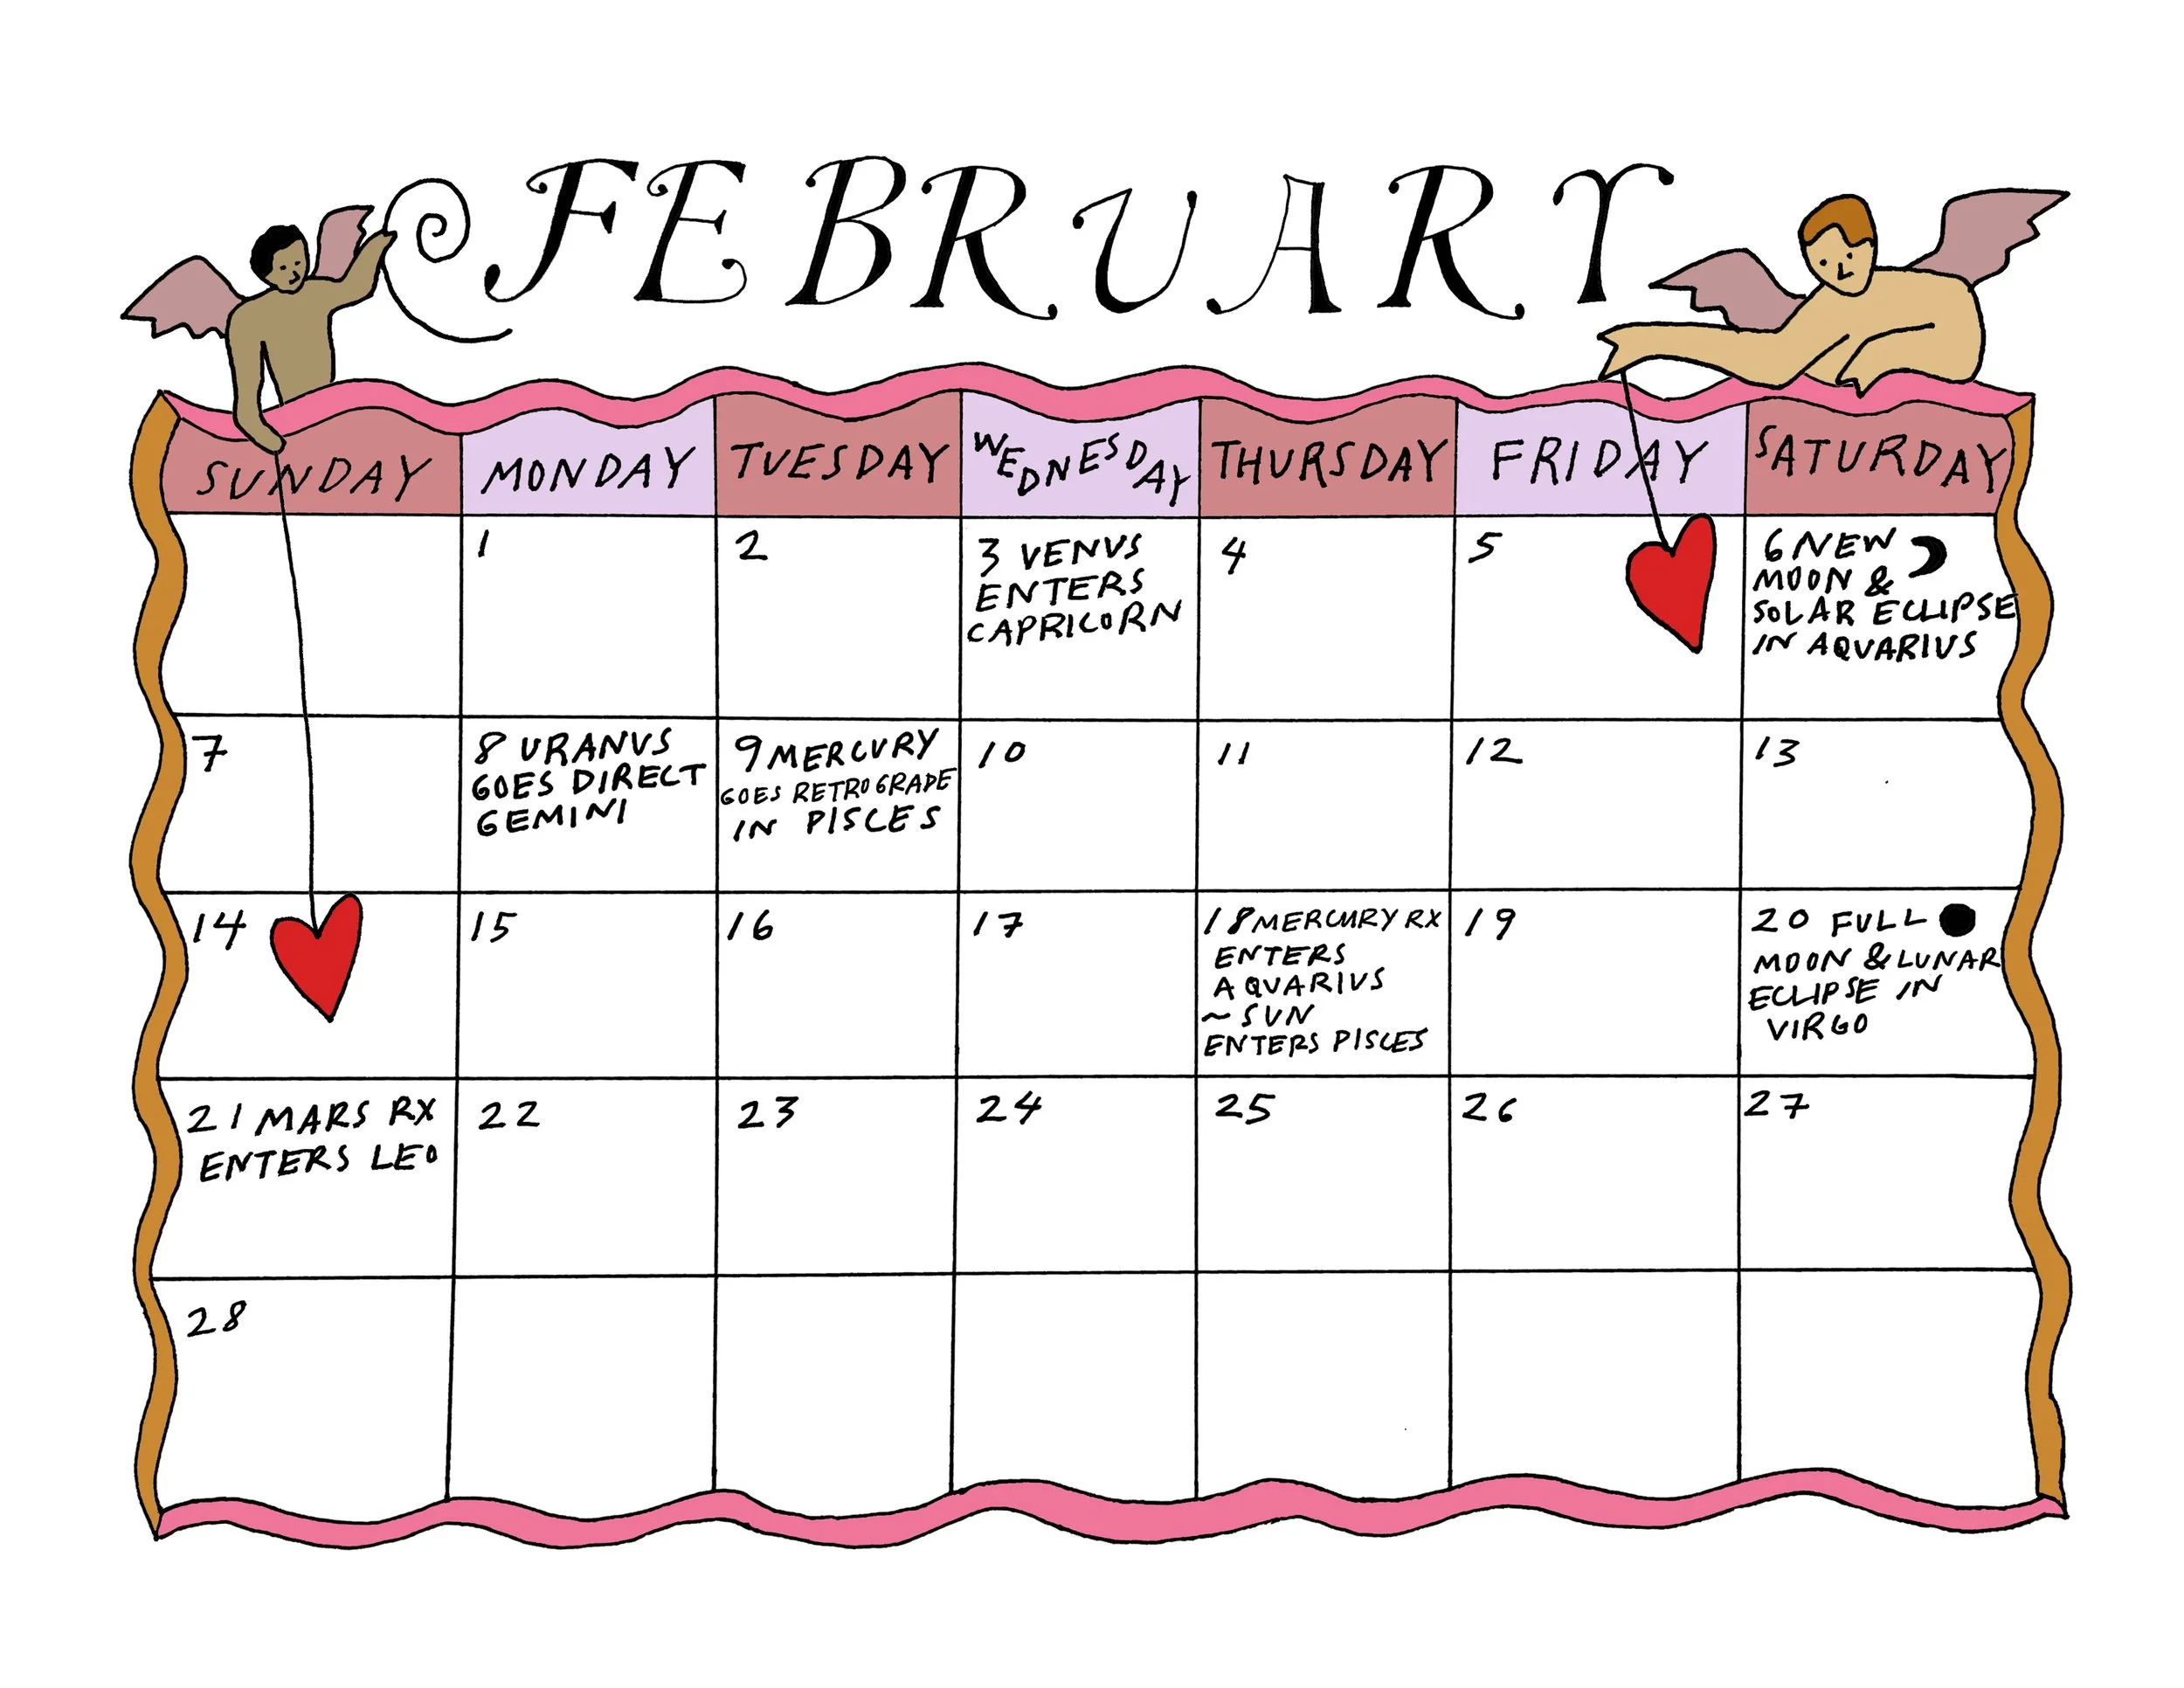 FEBRUARY
SUNDAY MONDAY TUESDAY WEDNESDAY THURSDAY FRIDAY SATURDAY
1
2
3 VENUS
ENTERS
CAPRICORN
4
5
6 NEW
MOON &
SOLAR ECLIPSE
IN AQUARIUS
7
8 URANUS
GOES DIRECT
GEMINI
9 MERCURY
GOES RETROGRADE
IN PISCES
10
11
12
13
14
15
16
17
18 MERCURY RX
ENTERS
AQUARIUS
~ SUN
ENTERS PISCES
19
20 FULL
MOON & LUNAR
ECLIPSE IN
VIRGO
21 MARS RX
ENTERS LEO
22
23
24
25
26
27
28